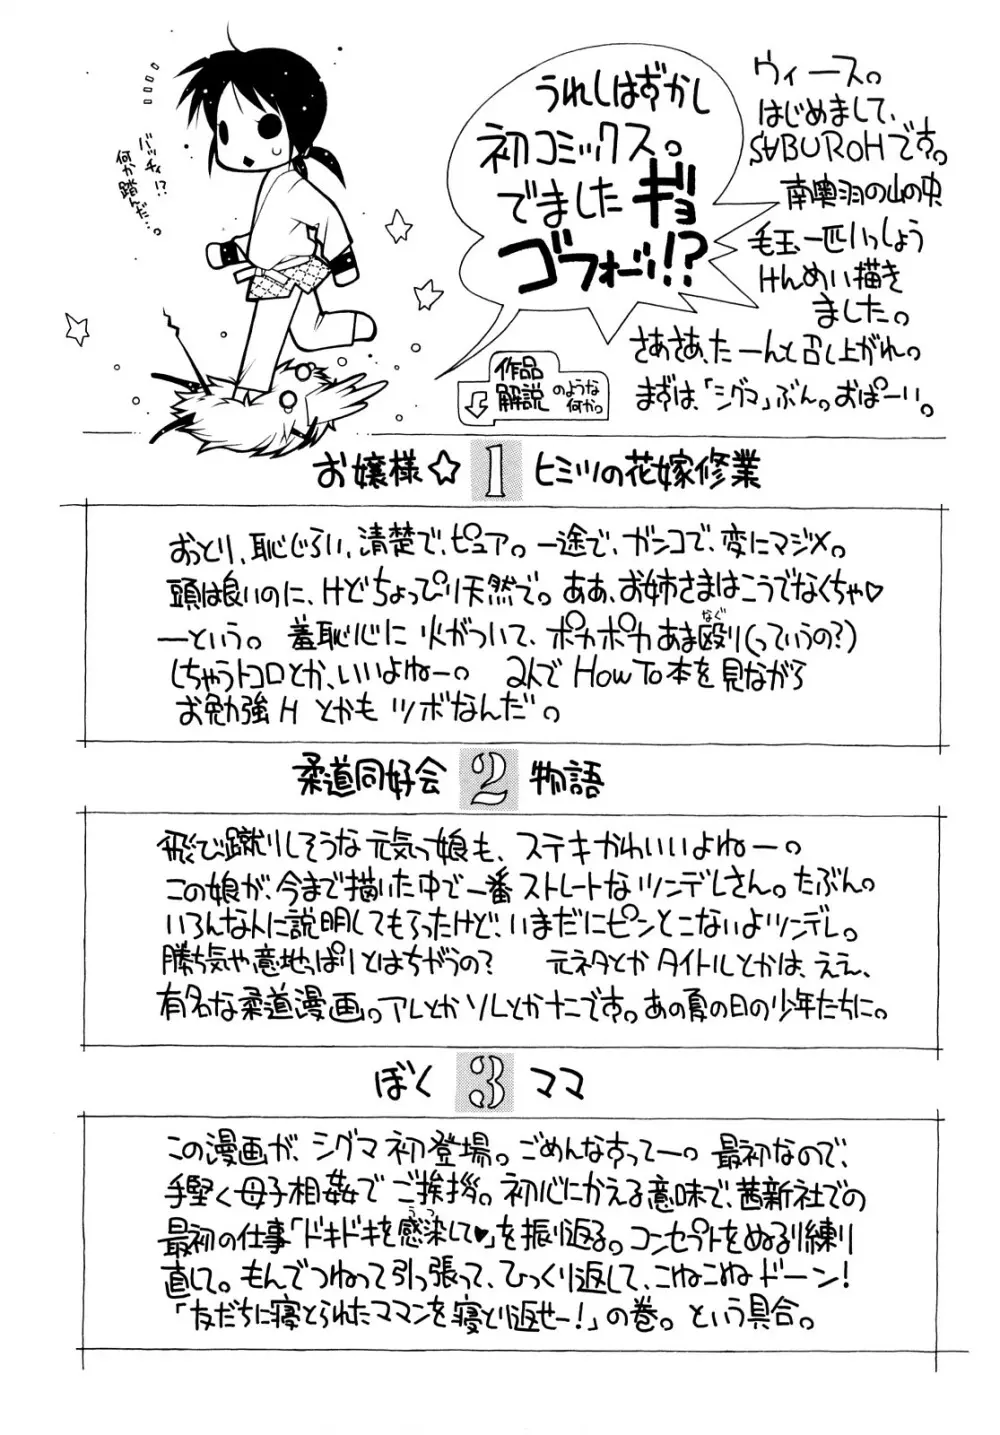 ウィース。
はじめまして、
SABUROHです。
南奥羽の山の中
毛玉一匹いっしょう
けんめい描き
ました。
さあさあ、たーんと召し上がれ。
まずは、「シグマ」ぶん。おぱーい。
うれしはずかし
初コミックス。
でました ギョ
ゴフォーッ!?
バッチィ!?
何か踏んだ…。
作品
解説
のような
何か。
お嬢様☆1 ヒミツの花嫁修業
おとり、恥じらい、清楚で、ピュア。一途で、ガンコで、変にマジメ。
頭は良いのに、けどちょっぴり天然で。ああ、お姉さまはこうでなくちゃ♥
―という。 羞恥心に火がついて、ポカポカあま殴り(っていうの?)
なぐ
しちゃうトコロとか、いいよねー。 2人で HowTo本を見ながら
お勉強H とかも ツボなんだ。
柔道同好会 2 物語
飛び蹴りしそうな元気っ娘も、ステキかわいいよねー。
この娘が、今まで描いた中で一番ストレートなツンデレさん。たぶん。
いろんな人に説明してもらったけど、いまだにピンとこないよツンデレ。
勝ち気や意地っぱりとはちがうの? 元ネタとかタイトルとかは、ええ、
有名な柔道漫画。アレとかソレとかナニです。あの夏の日の少年たちに。
ぼく 3 ママ
この漫画が、シグマ初登場。ごめんなすってー。最初なので、
手堅く母子相姦でご挨拶。初心にかえる意味で、茜新社での
最初の仕事「ドキドキを感染して♥」を振り返る。コンセプトをぬるり練り
うつ
直して。もんでつねって引っ張って、ひっくり返して、こねこねドーン!
「友だちに寝とられたママンを寝とり返せー!」の巻。という具合。